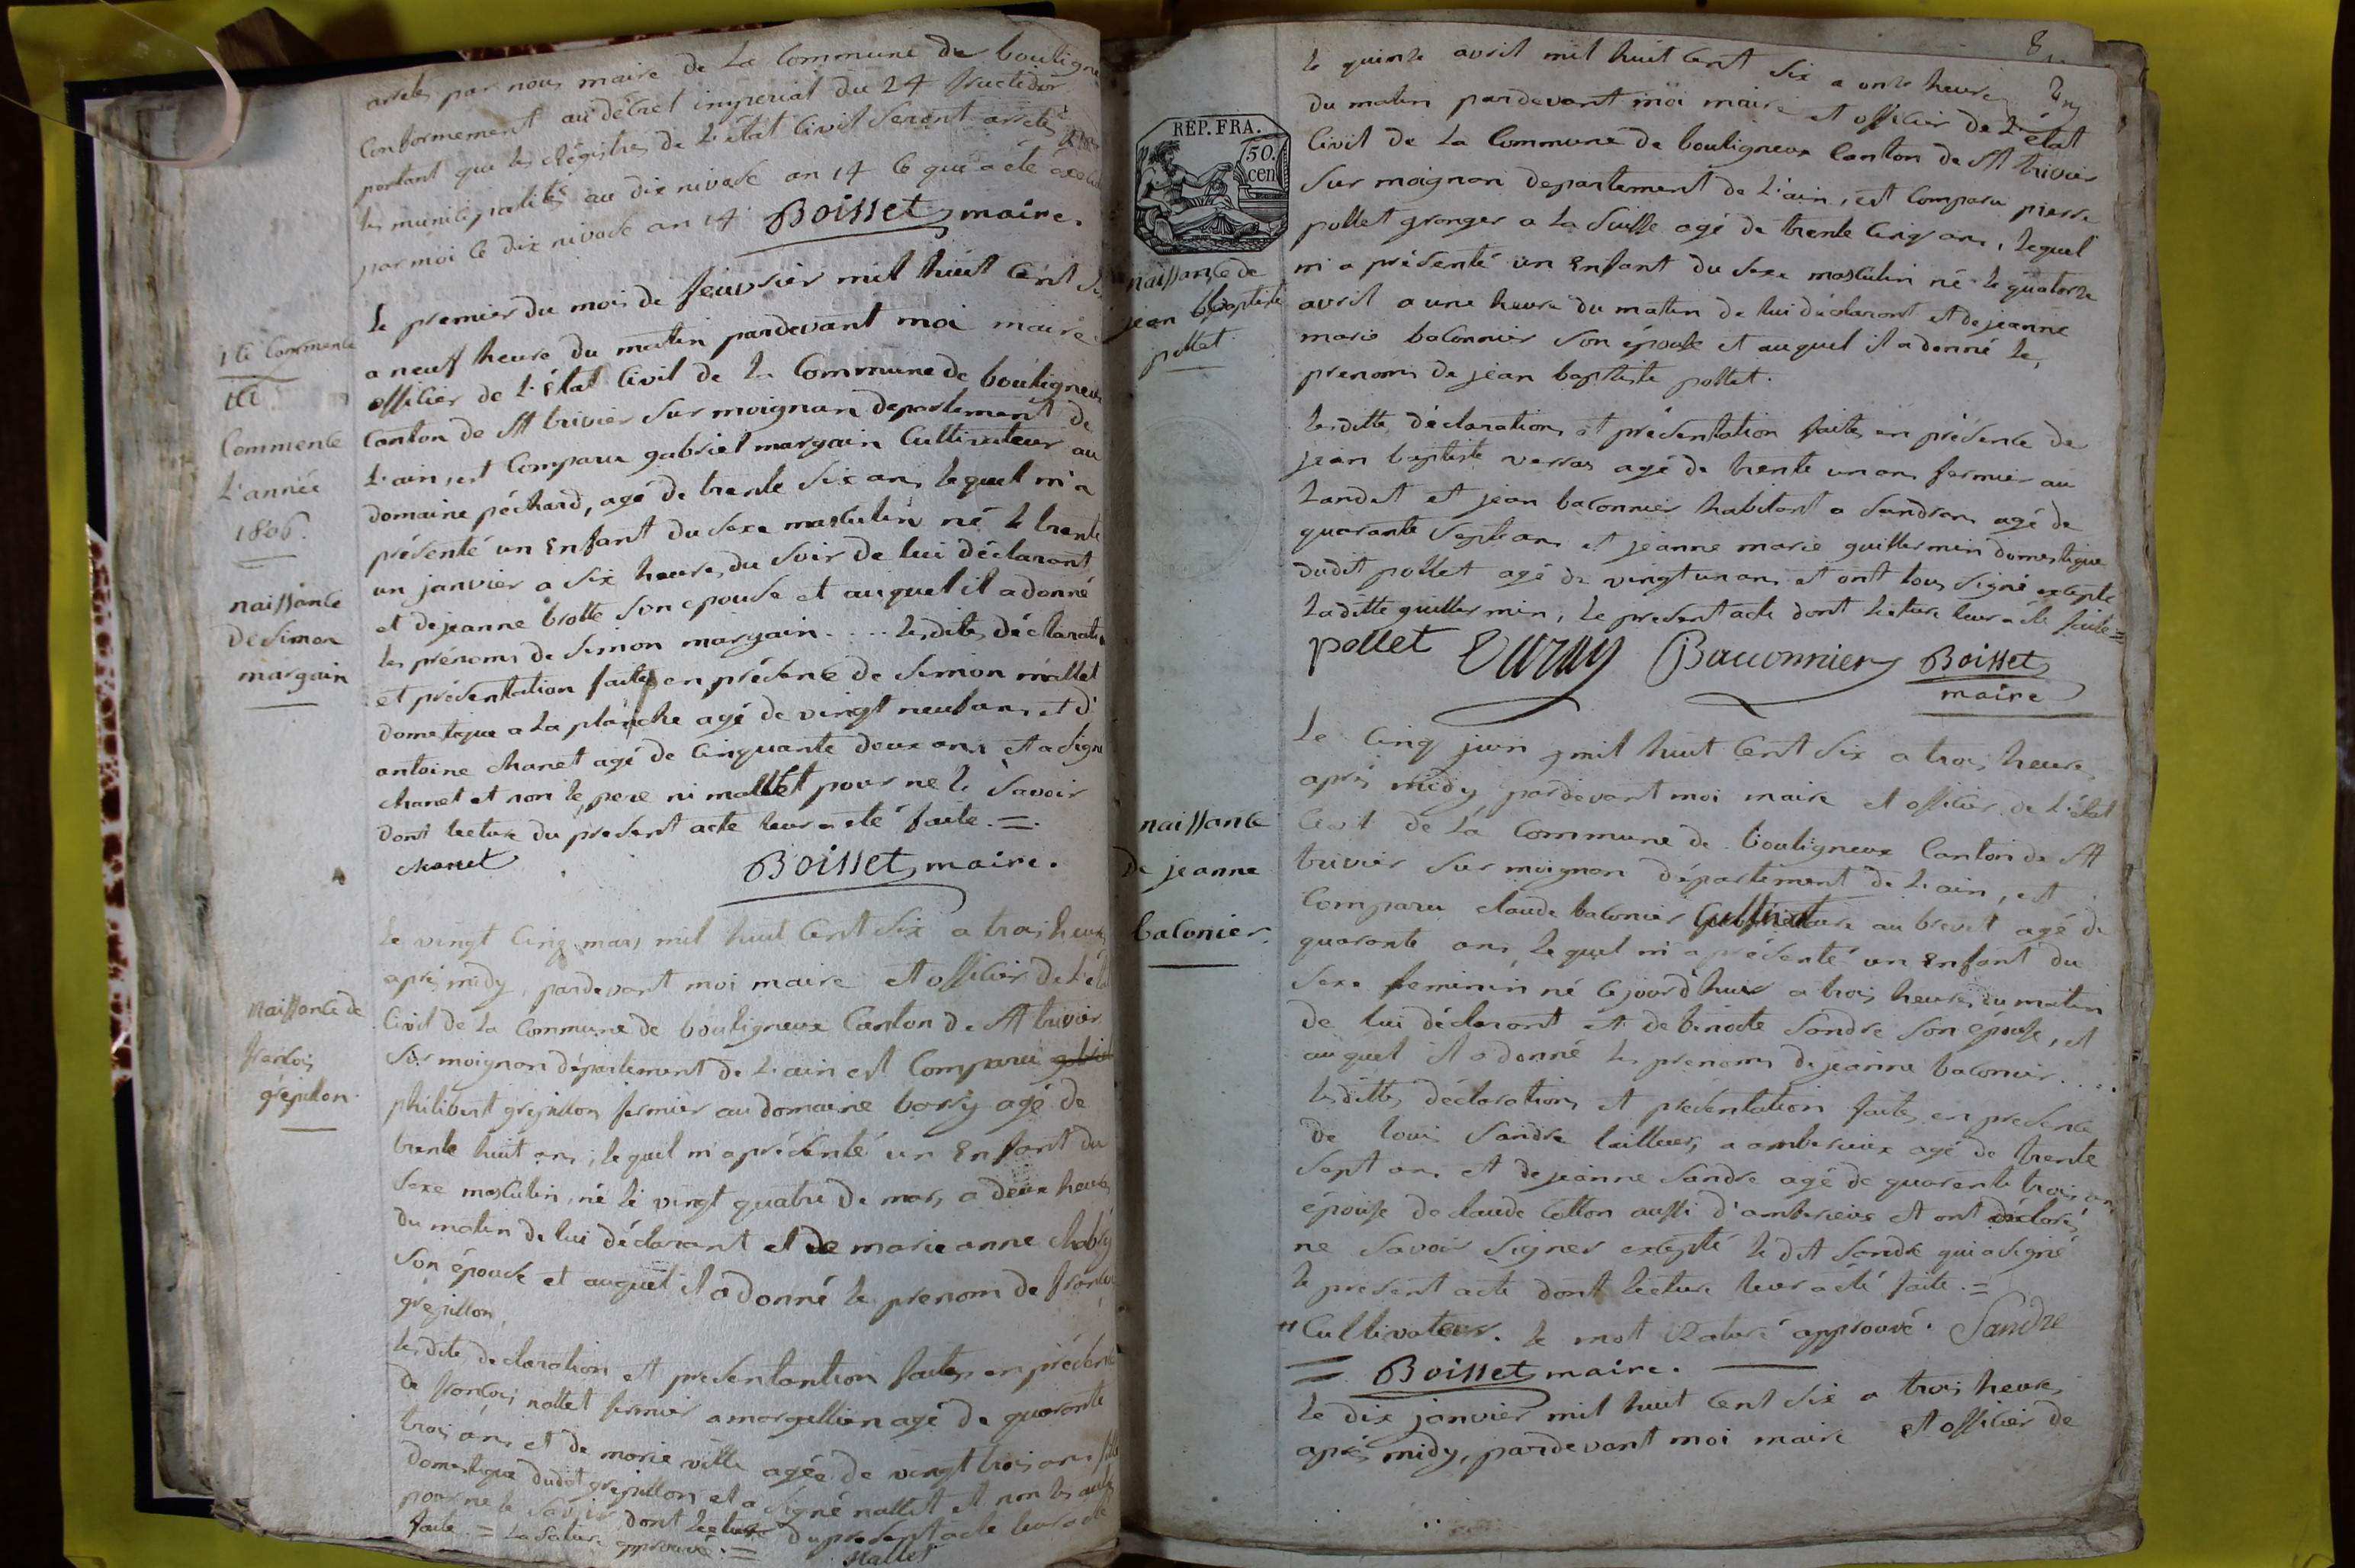 arrêté par nous maire de La Commune de bouligneux
Conformement au décret imperial du 24 fructidor
portant que les Régistres de L'état Civil Seront arretés
les municipalités au dix nivose an 14 Ce qui a été
par moi le dix nivose an 14 Boisset maire.
ici Commence
ici
Commence
L'année
1806.
Le premier du mois de feuvrier mil huit Cent Six
a neuf heure du matin pardevant moi maire
officier de L'état Civil de La Commune de bouligneux
Canton de St trivier Sur moignan departement de
L'ain, est Comparu gabriel margain Cultivateur au
domaine péchard, agé de trente Six ans, lequel m'a
présenté un Enfant du Sexe masculin né le trente
un janvier a Six heures du Soir de lui déclarant
et de jeanne brotte Son epouse et auquel il a donné
les prénoms de Simon margain.... lesdites déclaration
et présentation faites en présence de Simon mallet
domestique a La planche agé de vingt neuf ans et d'
antoine chanet agé de Cinquante deux ans et a Signé
chanet et non le pere ni mallet pour ne le Savoir
dont lecture du present acte leur a été faite. =
naissance
de Simon
margain
chanet
Boisset maire.
Le vingt Cinq mars mil huit Cent Six a trois heures
après midy, pardevant moi maire et officier de L'état
Civil de La Commune de bouligneux Canton de St trivier
Sur moignan département de L'ain est Comparu gabriel
philibert grepillon fermier au domaine borry agé de
trente huit ans, lequel m'a présenté un Enfant du
Sexe masculin, né le vingt quatre de mars a deux heures
du matin de lui déclarant et de marie anne chabry
Son épouse et auquel il a donné le prenom de francois
grepillon,
naissance de
francois
grepillon.
lesdites declaration et presentantion faites en présence
de francois nallet fermier a margellien agé de quarante
trois ans et de marie ville agée de vingt trois ans
domestique dudit grepillon et a Signé nallet et non les autres
pour ne le Savoir dont lecture du present acte leur a été
faite. = La rature approuvé. =
Nallet
8
Le quinze avril mil huit Cent Six a onze heures
du matin pardevant moi maire et officier de L'état
Civil de La Commune de bouligneux Canton de St trivier
Sur moignan departement de L'ain, est Comparu pierre
pollet granger a La Suisse agé de trente Cinq ans, lequel
m'a présenté un Enfant du Sexe masculin né le quatorze
avril a une heure du matin de lui déclarant et de jeanne
marie baconnier Son épouse et auquel il a donné les
prenoms de jean baptiste pollet.
REP. FRA.
50.
cen
naissance de
jean baptiste
pollet
lesdittes déclarations et présentation faites en présence de
jean baptiste agé de trente un ans fermier au
Landet et jean baconnier habitant a Sandrans agé de
quarante Sept ans et jeanne marie guillermin domestique
dudit pollet agé de vingt un ans et ont tous Signé excepté
Laditte guillermin, le present acte dont lecture leur a été faite =
pollet Baconnier Boisset
maire
Le Cinq juin mil huit Cent Six a trois heures
après midy pardevant moi maire et officier de L'état
Civil de La Commune de bouligneux Canton de St
trivier Sur moignan département de L'ain, est
Comparu claude baconier au brevet agé de
quarante ans, lequel m'a présenté un Enfant du
Sexe feminin né Cejourd'hui a trois heures du matin
de lui déclarant et de benoite Sandre Son épouse, et
auquel il a donné les prenoms de jeanne baconier....
naissance
de jeanne
baconier.
lesdittes déclarations et présentation faites en presence
de louis Sandre tailleur, a amberieux agé de trente
Sept ans et de jeanne Sandre agé de quarente trois ans
épouse de claude Cotton aussi d'amberieux et ont déclaré
ne Savoir Signer excepté le dit Sandre qui a Signé
le present acte dont lecture leur a été faite. =
" Cultivateur. Le mot Raturé approuvé. Sandre
= Boisset maire.
Le dix janvier mil huit Cent Six a trois heures
après midy, pardevant moi maire et officier de